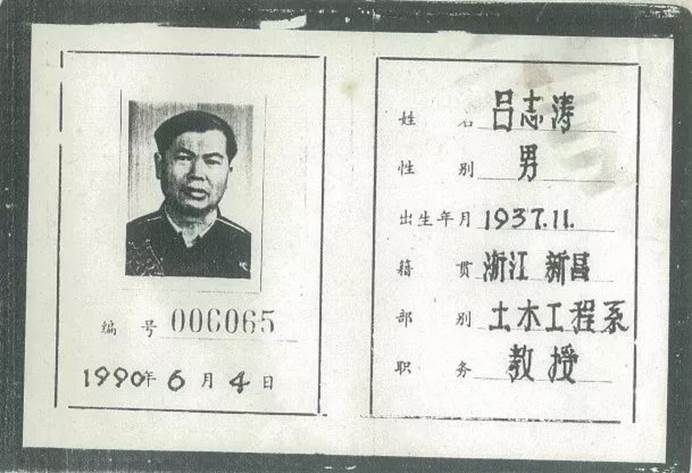 编 号 006065
1990年 6 月 4 日
姓 名 吕志涛
性 别 男
出生年月 1937.11.
籍 贯 浙江 新昌
部 别 土木工程系
职 务 教授